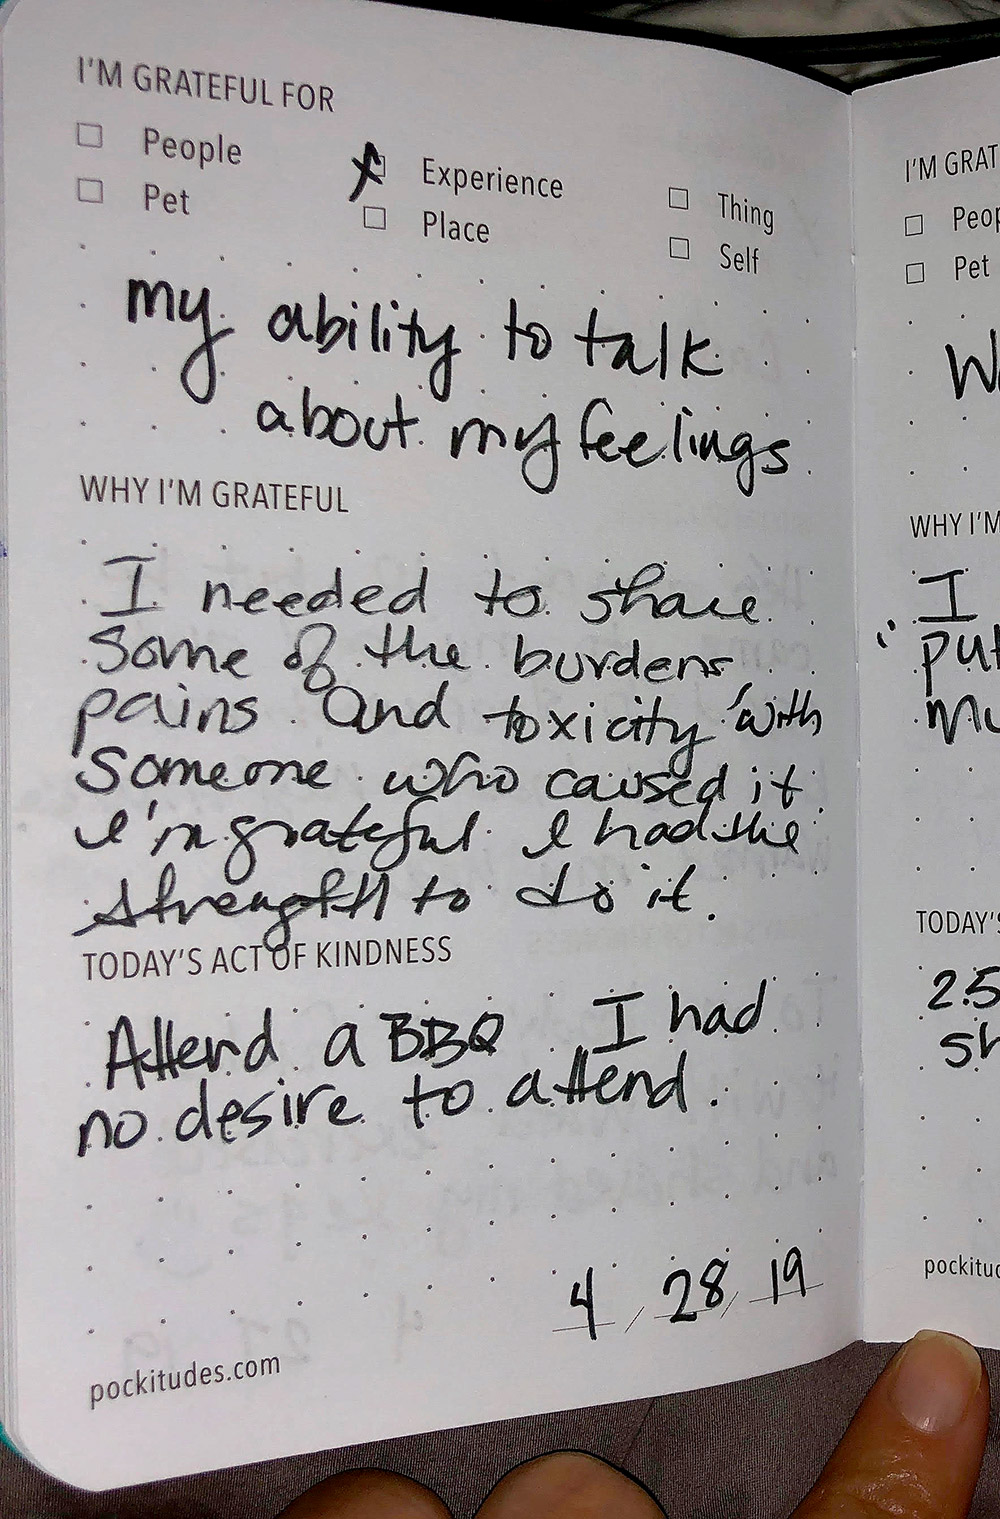 I'M GRATEFUL FOR
People
Experience
Thing
Pet
Place
Self
my ability to talk
about my feelings
WHY I'M GRATEFUL
I needed to share
some of the burdens
pains and toxicity with
someone who caused it.
I'm grateful I had the
strength to do it.
TODAY'S ACT OF KINDNESS
Attend a BBQ I had
no desire to attend.
4 / 28 / 19
pockitudes.com
I'M GRAT
Peop
Pet
W
WHY I'M
I
put
TODAY'S
2.5
sh
pockitud